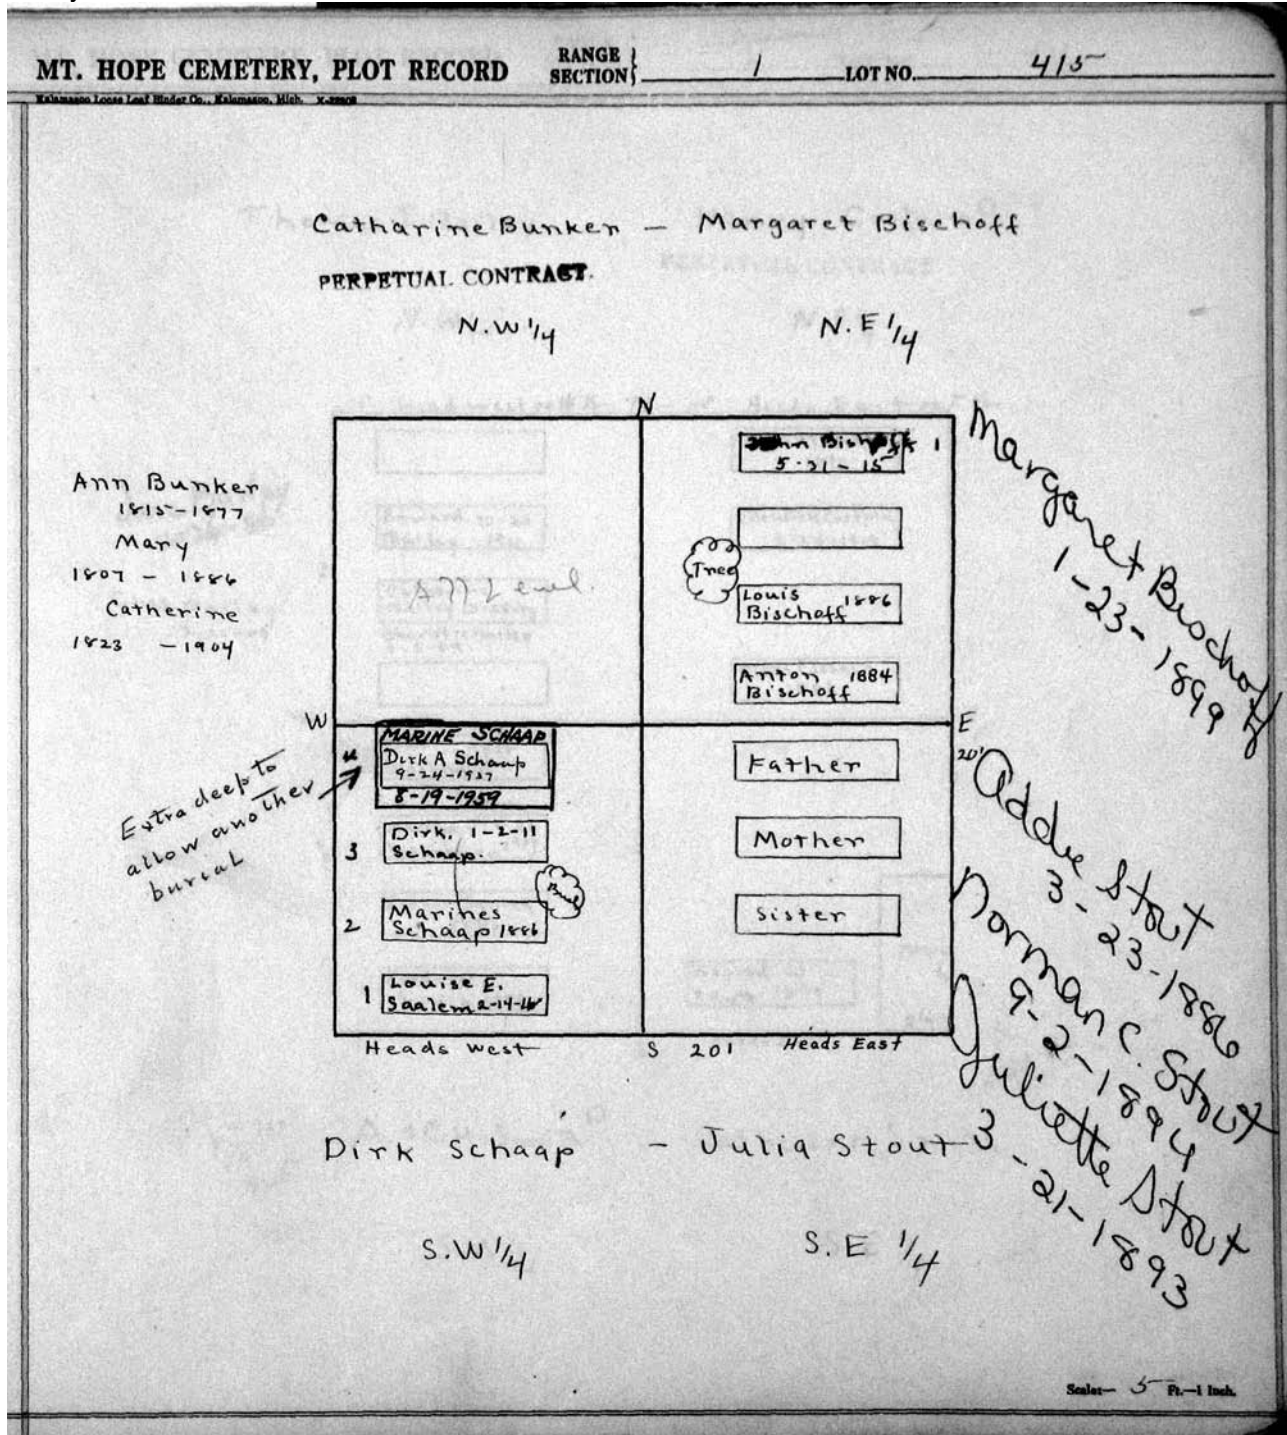 MT. HOPE CEMETERY, PLOT RECORD
RANGE
SECTION 1 LOT NO. 415
Kalamazoo Loose Leaf Binder Co., Kalamazoo, Mich.
Catharine Bunker — Margaret Bischoff
PERPETUAL CONTRACT.
N.W 1/4 N.E 1/4
N
Bischoff 1
5-21-15
Ann Bunker
1815-1877
Mary
1807 - 1886
Catherine
1823 - 1904
All Level.
Tree
Louis 1886
Bischoff
Anton 1884
Bischoff
Margaret Bischoff
1-23-1899
W
E
20'
MARINE SCHAAP
Dirk A Schaap
9-24-1937
8-19-1959
Extra deep to
allow another
burial
3
Dirk. 1-2-11
Schaap.
2
Marines
Schaap 1886
1
Louise E.
Saalem 2-14-16
Father
Mother
Sister
Addie Stout
3-23-1886
Norman C. Stout
9-2-1894
Juliette Stout
3-21-1893
Heads West S 201 Heads East
Dirk Schaap - Julia Stout
S.W 1/4 S.E 1/4
Scale— 5 Ft.—1 Inch.